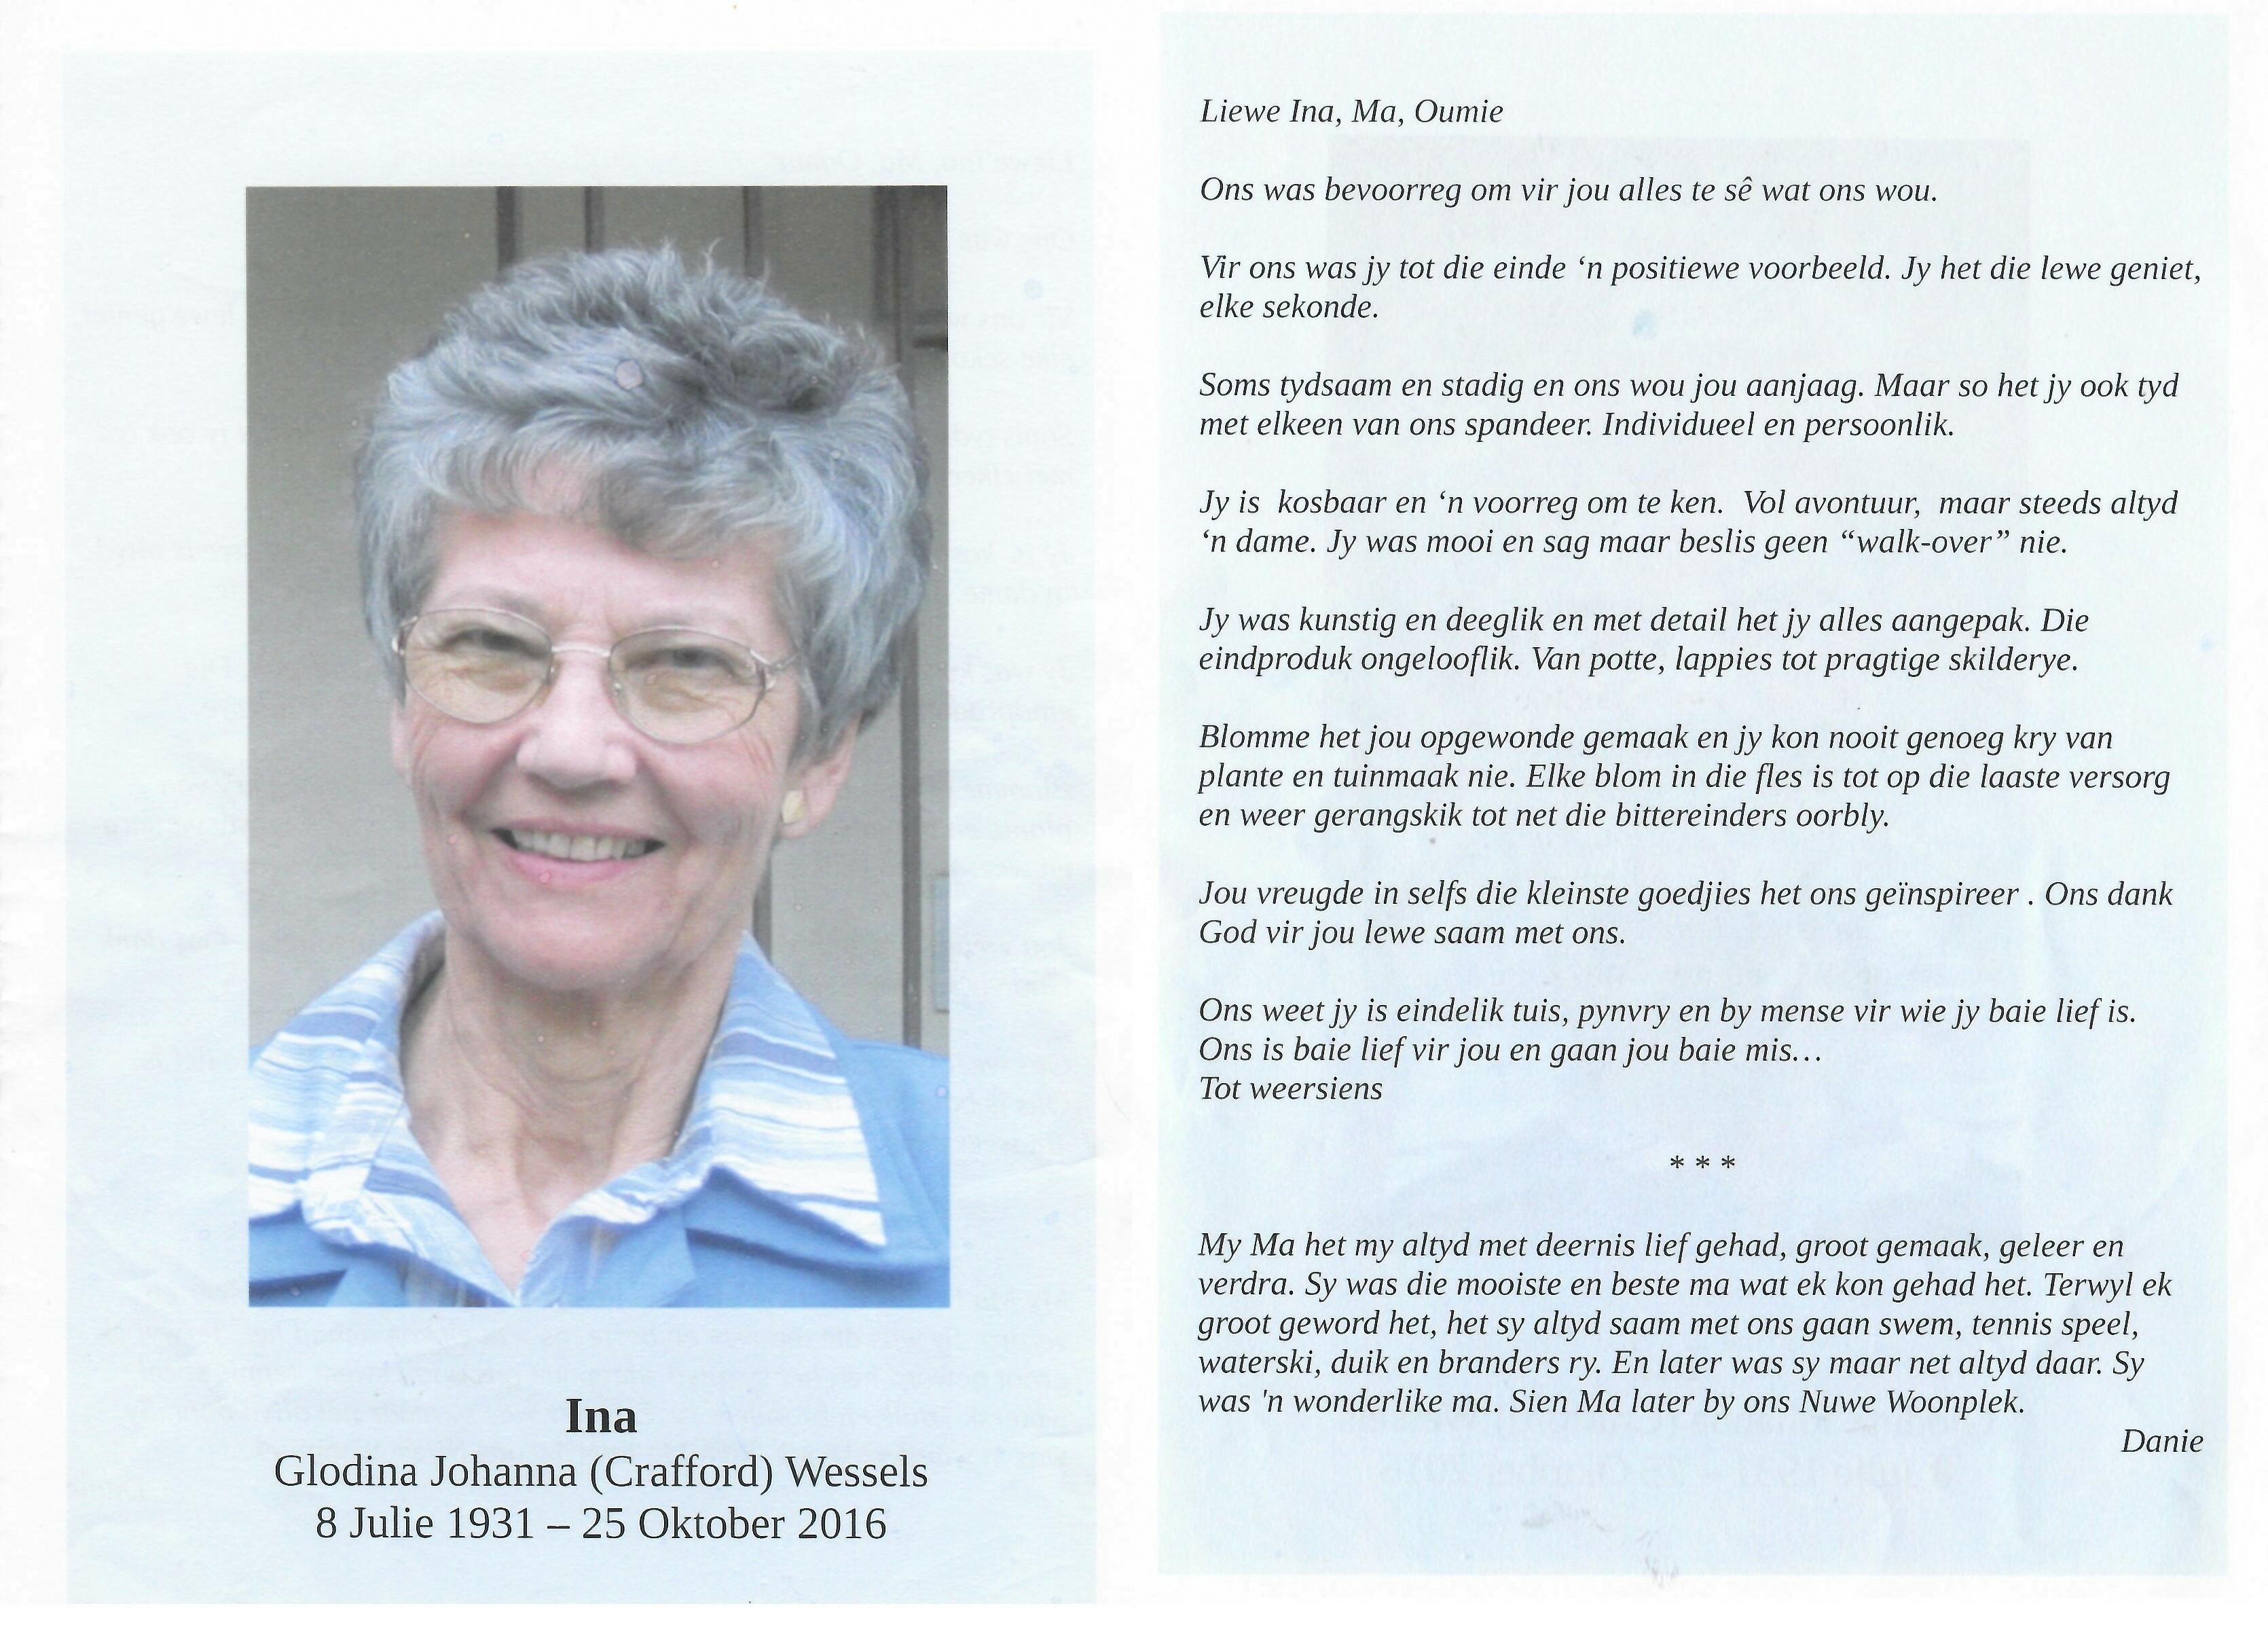 Ina
Glodina Johanna (Crafford) Wessels
8 Julie 1931 – 25 Oktober 2016
Liewe Ina, Ma, Oumie
Ons was bevoorreg om vir jou alles te sê wat ons wou.
Vir ons was jy tot die einde ‘n positiewe voorbeeld. Jy het die lewe geniet,
elke sekonde.
Soms tydsaam en stadig en ons wou jou aanjaag. Maar so het jy ook tyd
met elkeen van ons spandeer. Individueel en persoonlik.
Jy is  kosbaar en ‘n voorreg om te ken.  Vol avontuur,  maar steeds altyd
‘n dame. Jy was mooi en sag maar beslis geen “walk-over” nie.
Jy was kunstig en deeglik en met detail het jy alles aangepak. Die
eindproduk ongelooflik. Van potte, lappies tot pragtige skilderye.
Blomme het jou opgewonde gemaak en jy kon nooit genoeg kry van
plante en tuinmaak nie. Elke blom in die fles is tot op die laaste versorg
en weer gerangskik tot net die bittereinders oorbly.
Jou vreugde in selfs die kleinste goedjies het ons geïnspireer . Ons dank
God vir jou lewe saam met ons.
Ons weet jy is eindelik tuis, pynvry en by mense vir wie jy baie lief is.
Ons is baie lief vir jou en gaan jou baie mis…
Tot weersiens
* * *
My Ma het my altyd met deernis lief gehad, groot gemaak, geleer en
verdra. Sy was die mooiste en beste ma wat ek kon gehad het. Terwyl ek
groot geword het, het sy altyd saam met ons gaan swem, tennis speel,
waterski, duik en branders ry. En later was sy maar net altyd daar. Sy
was 'n wonderlike ma. Sien Ma later by ons Nuwe Woonplek.
Danie